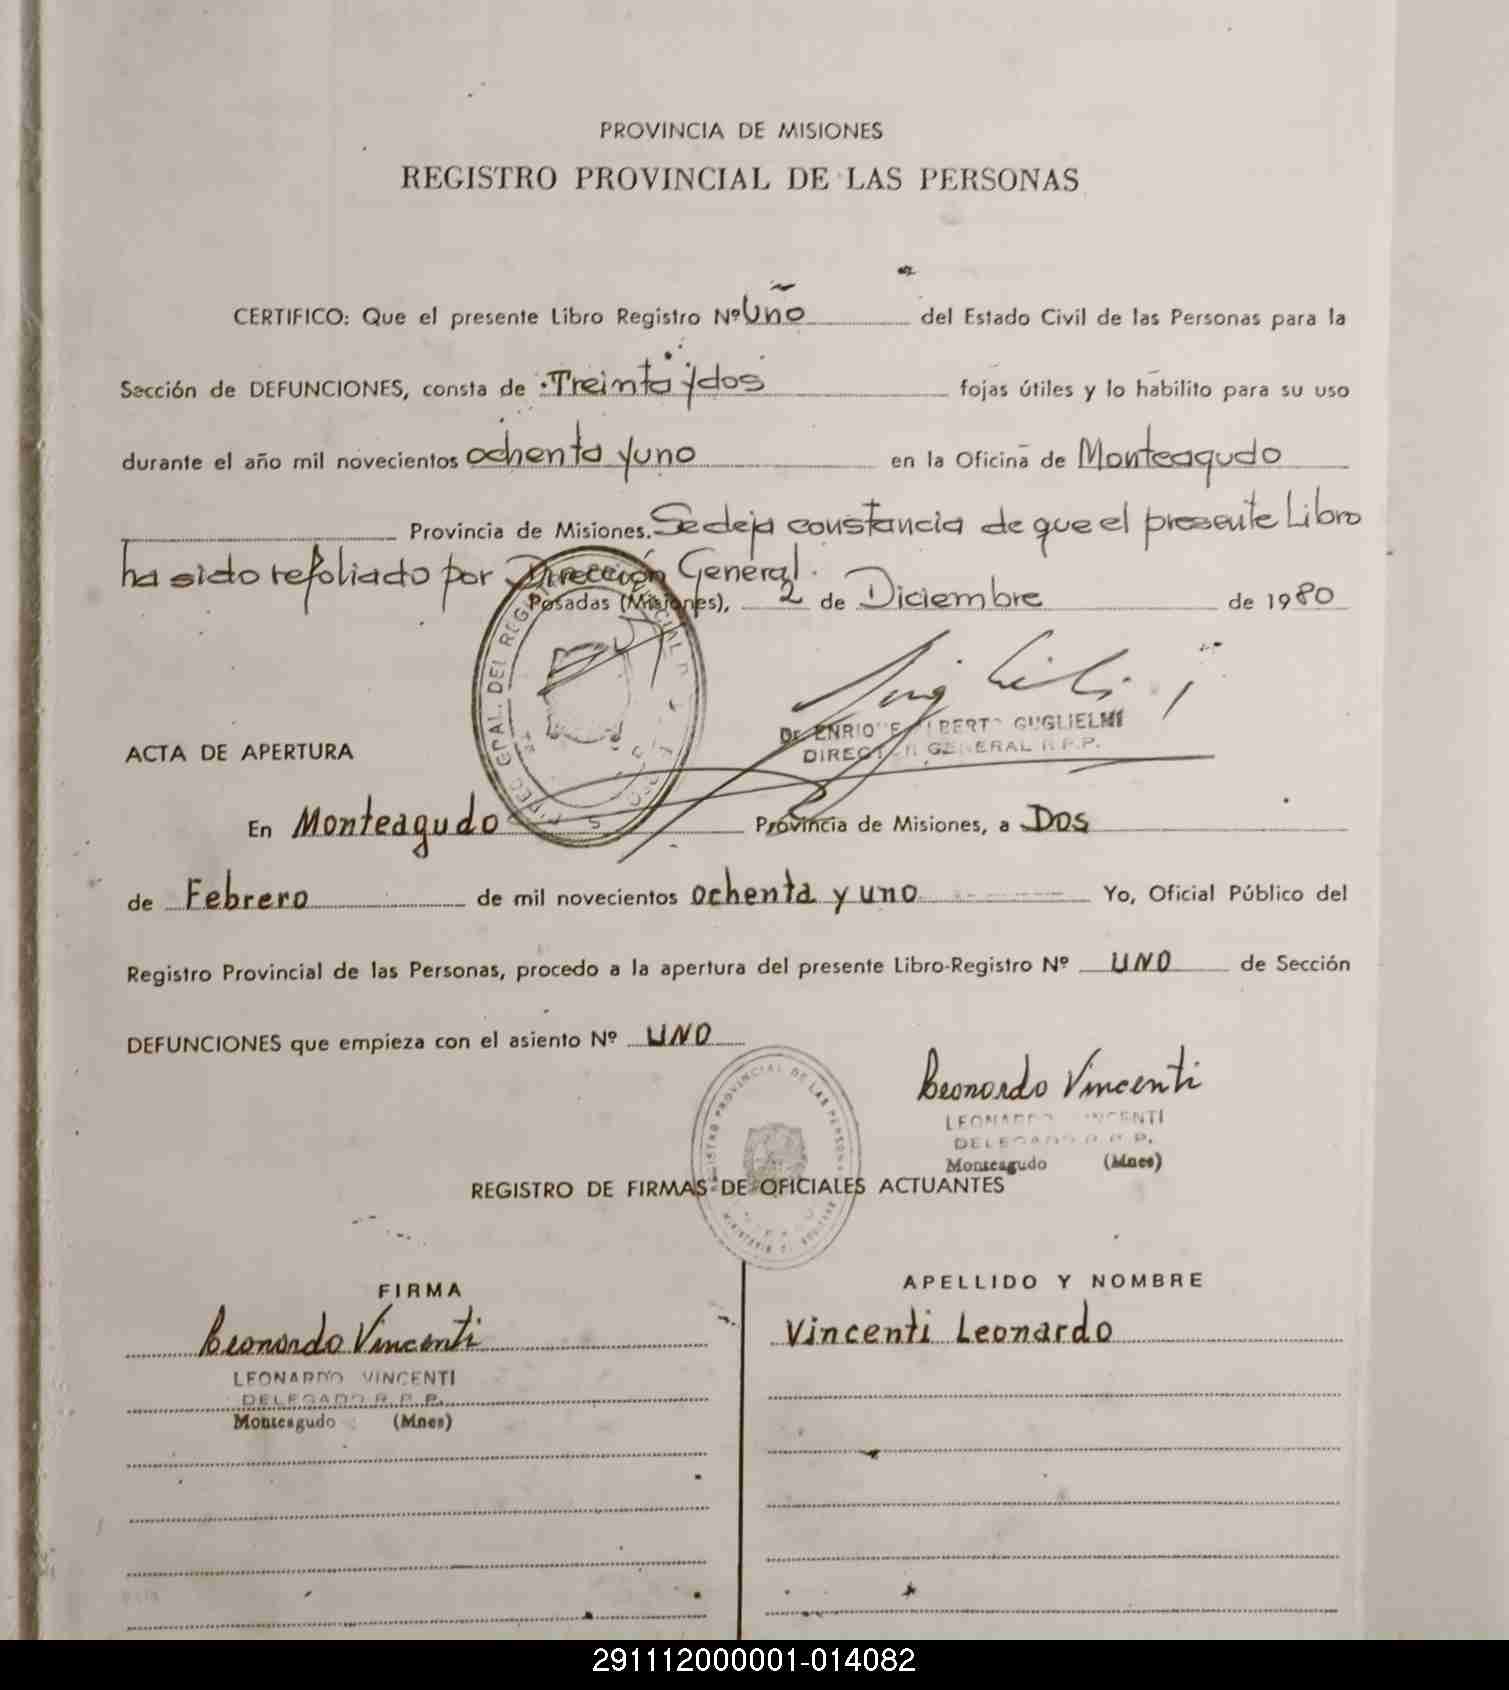 PROVINCIA DE MISIONES
REGISTRO PROVINCIAL DE LAS PERSONAS
CERTIFICO: Que el presente Libro Registro Nº Uno del Estado Civil de las Personas para la
Sección de DEFUNCIONES, consta de Treinta y dos fojas útiles y lo habilito para su uso
durante el año mil novecientos ochenta y uno en la Oficina de Monteagudo
Provincia de Misiones. Se deja constancia de que el presente Libro
ha sido refoliado por Dirección General.
Posadas (Misiones), 2 de Diciembre de 1980
Dr. ENRIQUE ALBERTO GUGLIELMI
DIRECTOR GENERAL R.P.P.
ACTA DE APERTURA
En Monteagudo Provincia de Misiones, a Dos
de Febrero de mil novecientos ochenta y uno Yo, Oficial Público del
Registro Provincial de las Personas, procedo a la apertura del presente Libro-Registro Nº UNO de Sección
DEFUNCIONES que empieza con el asiento Nº UNO
Leonardo Vincenti
LEONARDO VINCENTI
DELEGADO R.P.P.
Monteagudo (Mnes)
REGISTRO PROVINCIAL DE LAS PERSONAS
REGISTRO DE FIRMAS DE OFICIALES ACTUANTES
FIRMA APELLIDO Y NOMBRE
Leonardo Vincenti Vincenti Leonardo
LEONARDO VINCENTI
DELEGADO R.P.P.
Monteagudo (Mnes)
291112000001-014082